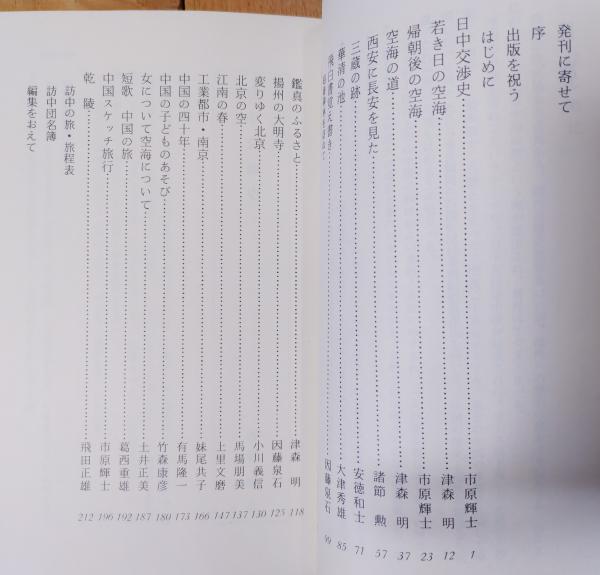 発刊に寄せて
序
出版を祝う
はじめに
日中交渉史……市原輝士 1
若き日の空海……津森 明 12
帰朝後の空海……市原輝士 23
空海の道……津森 明 37
西安に長安を見た……諸節 勲 57
三蔵の跡……安徳和士 71
華清の池……大津秀雄 85
飛白書覚え書き……因藤泉石 99
鑑真のふるさと……津森 明 118
揚州の大明寺……因藤泉石 125
変りゆく北京……小川義信 130
北京の空……馬場朋美 137
江南の春……上里文磨 147
工業都市・南京……妹尾共子 166
中国の四十年……有馬隆一 173
中国の子どものあそび……竹森康彦 180
女について空海について……土井正美 187
短歌 中国の旅……葛西重雄 192
中国スケッチ旅行……市原輝士 196
乾 陵……飛田正雄 212
訪中の旅・旅程表
訪中団名簿
編集をおえて